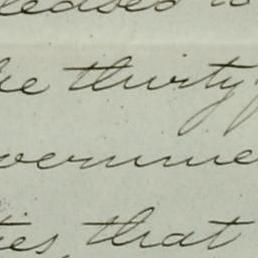 leased to
he thirty
vernme
ties, that